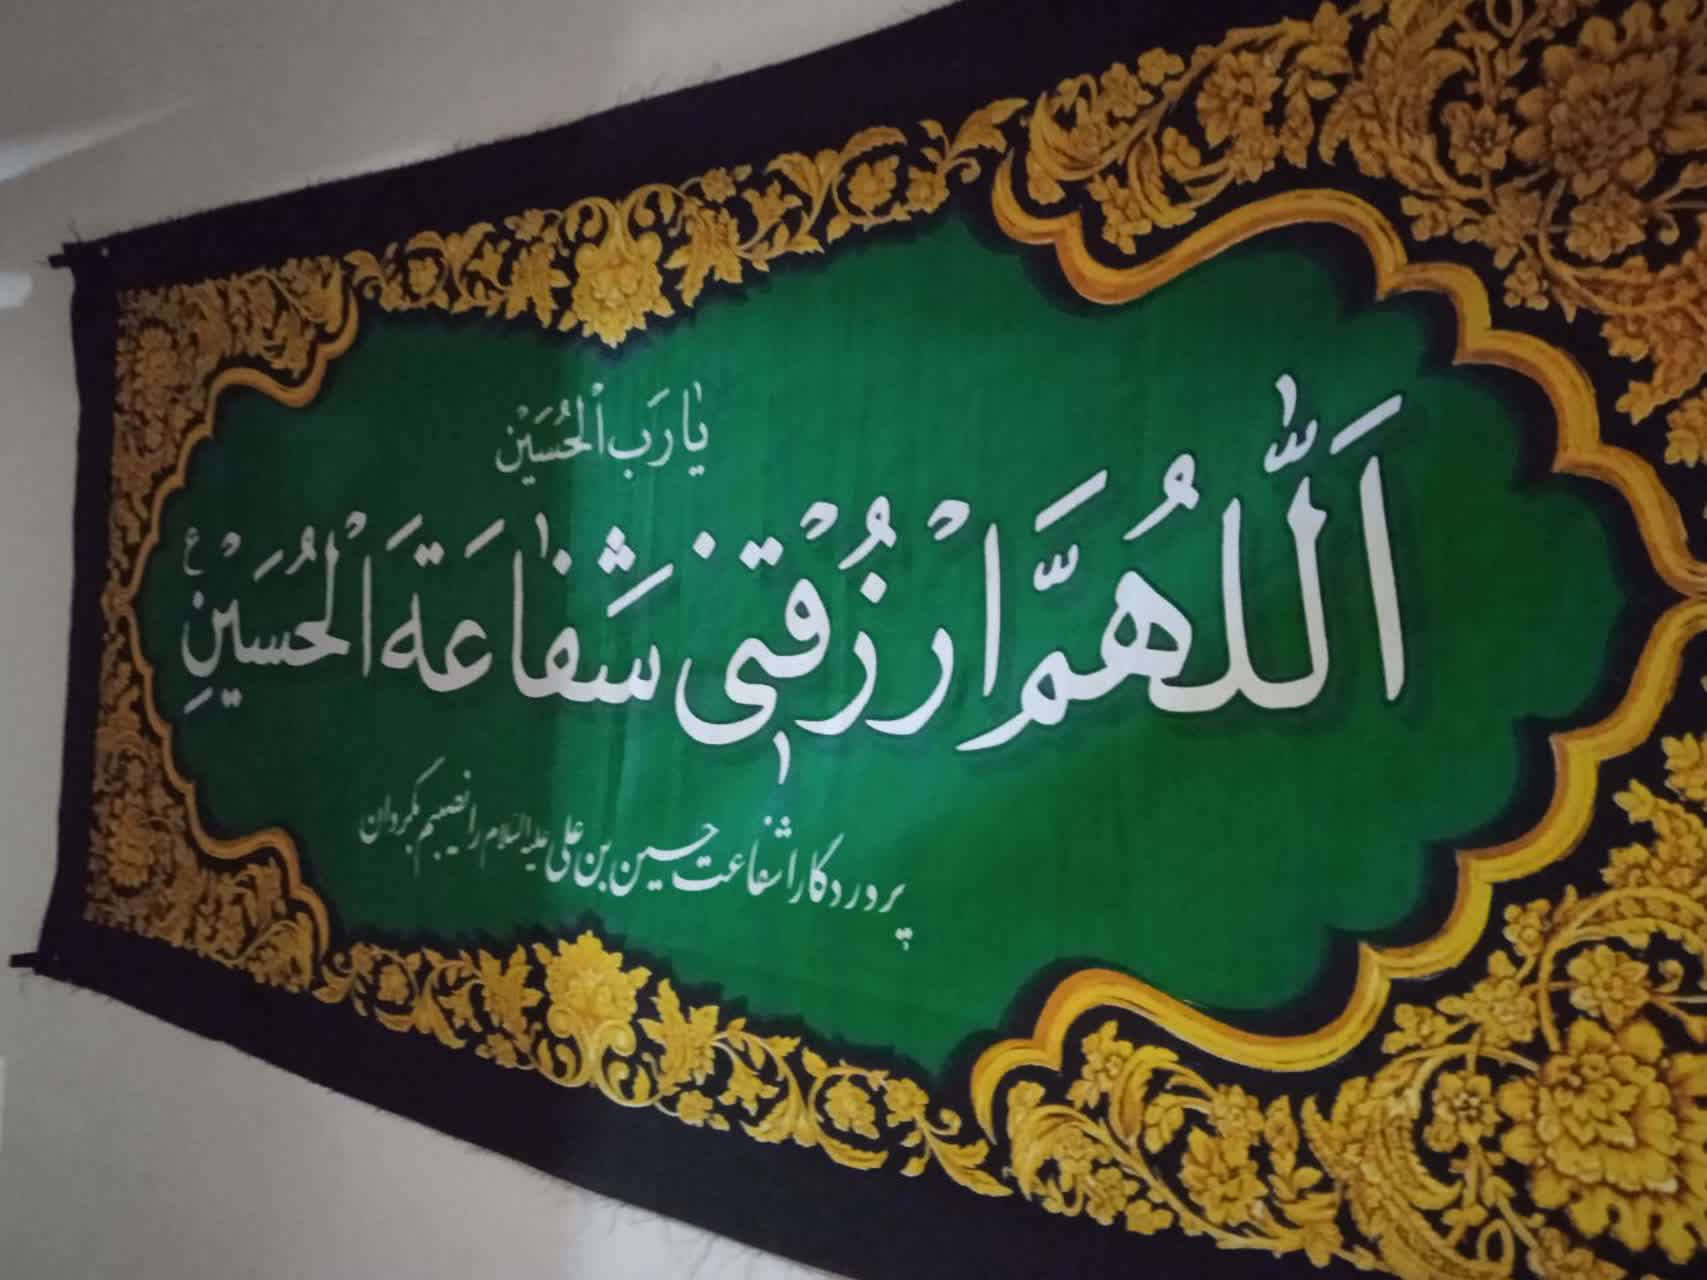 يٰا رَبَ اْلحُسَيْن
اَللّٰهُمَّ ارْزُقْنٖى شَفٰاعَةَ اَلْحُسَيْنِ ع
پروردگارا شفاعت حسین بن علی علیه السلام را نصیبم بگردان